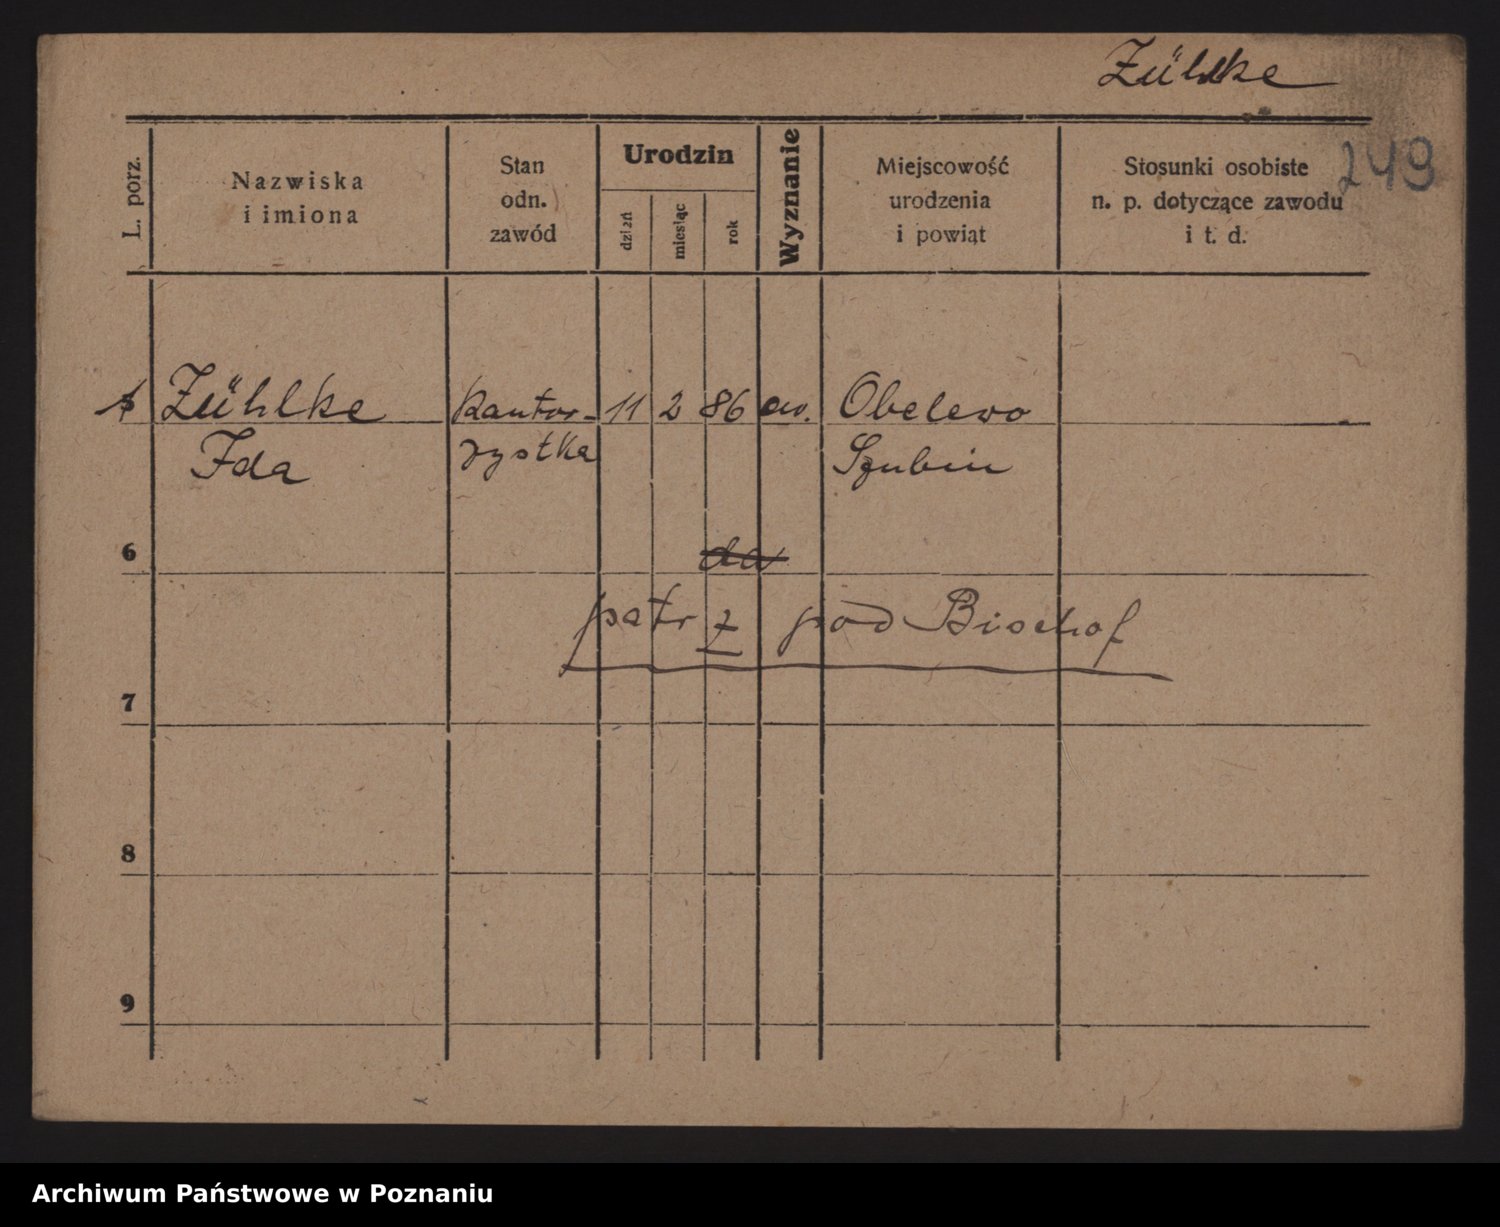 Zühlke
249
L. porz.
Nazwiska
i imiona
Stan
odn.
zawód
Urodzin
dzień
miesiąc
rok
Wyznanie
Miejscowość
urodzenia
i powiąt
Stosunki osobiste
n. p. dotyczące zawodu
i t. d.
Zühlke kantor- 11 2 86 ew. Obelewo
Ida rystka Szubin
6
da
patrz pod Bischof
7
8
9
Archiwum Państwowe w Poznaniu